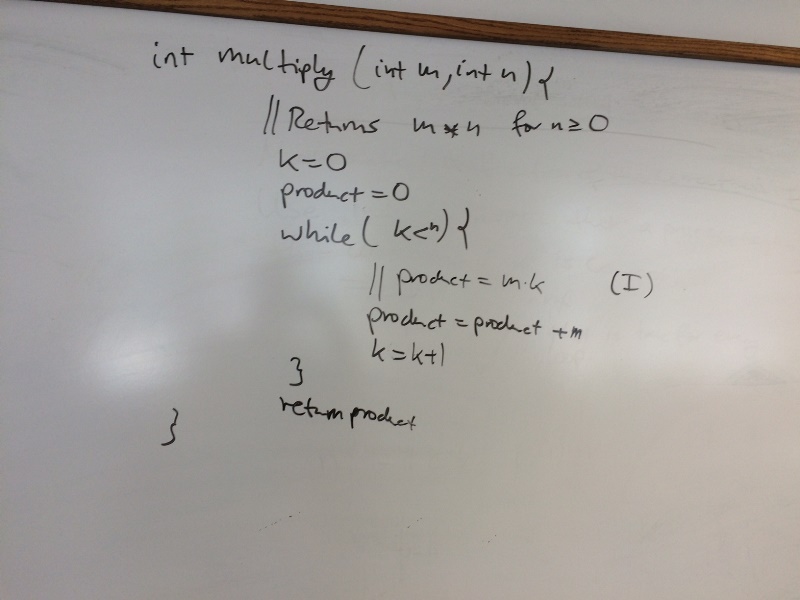 int multiply (int m, int n) {
// Returns m * n for n ≥ 0
k = 0
product = 0
while ( k < n) {
// product = m·k (I)
product = product + m
k = k+1
}
return product
}